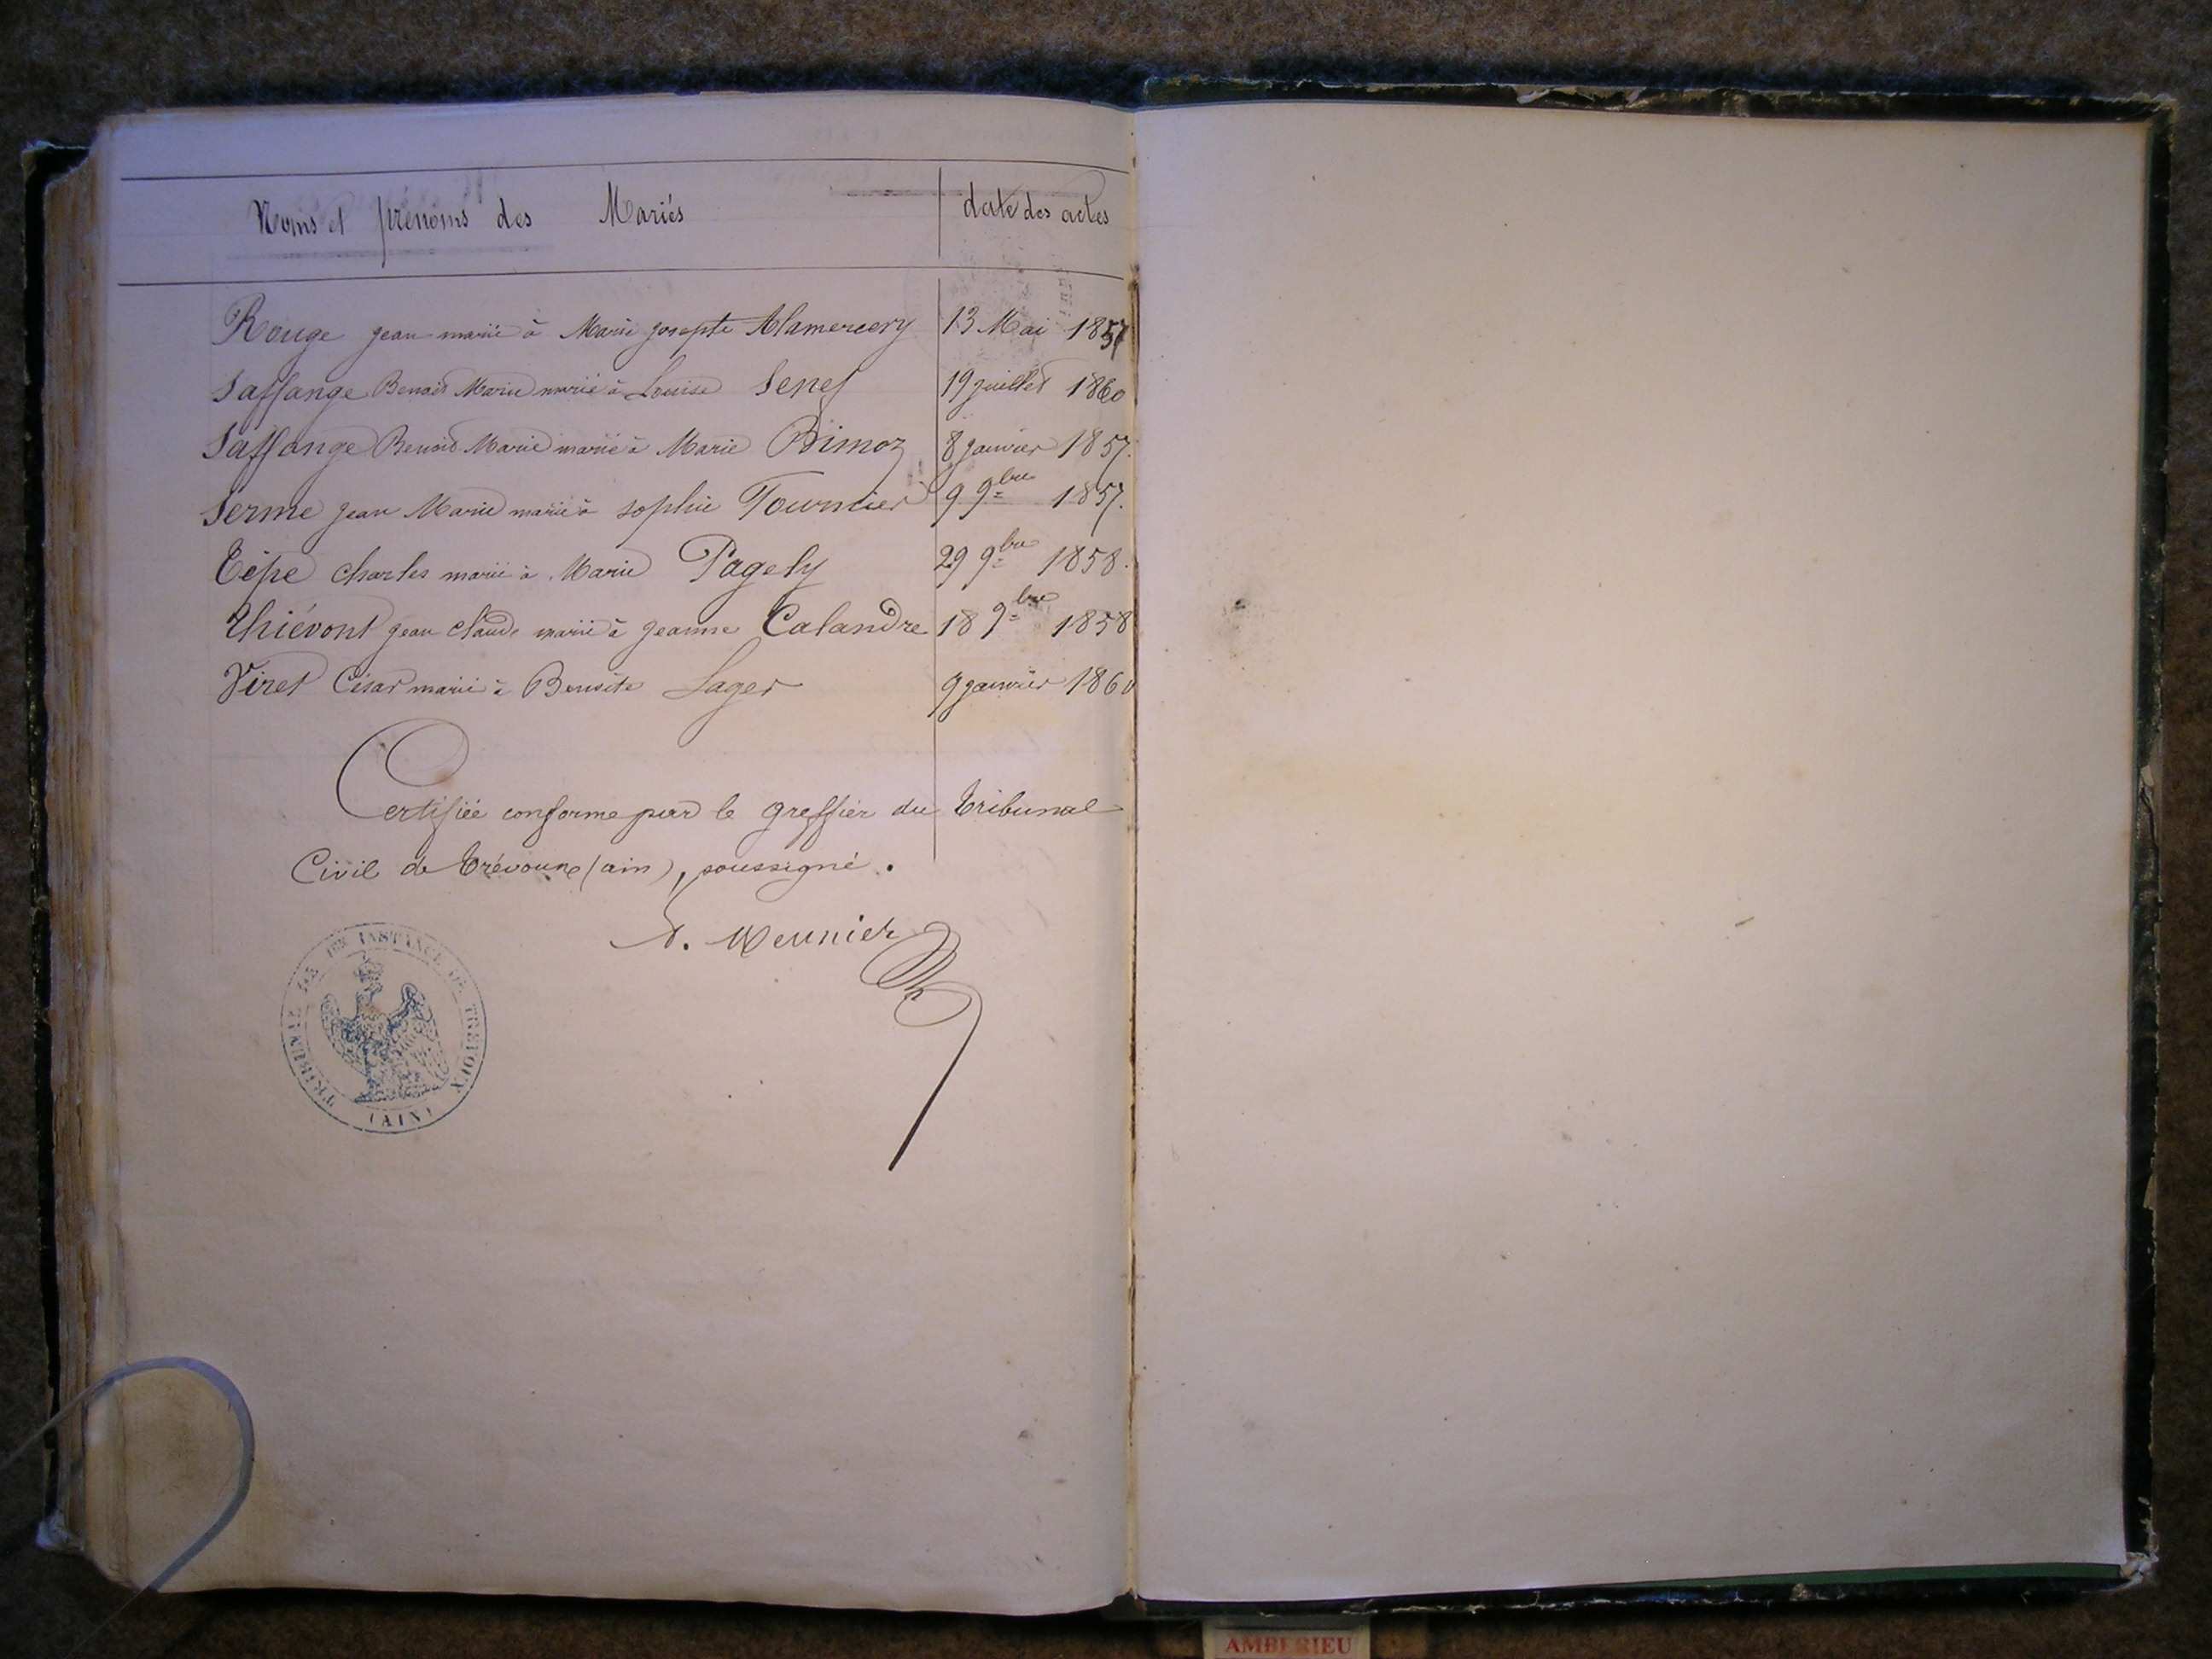 Noms et prénoms des Mariés date des actes
Rouge jean marié à Marie josepte Alamercery 13 Mai 1857
Saffange Benoit Marie marié à Louise Senet 19 juillet 1860
Saffange Benoit Marie marié à Marie Bimoz 8 janvier 1857.
Serme jean Marie marié à sophie Tournier 9 9bre 1857.
Tépe charles marié à Marie Pagely 29 9bre 1858.
Thiévont jean claude marié à jeanne Calandre 18 9bre 1858
Viret César marié à Benoite Lager 9 janvier 1860
Certifiée conforme par le greffier du tribunal
Civil de trévoux (ain), soussigné.
Meunier
TRIBUNAL DE 1RE INSTANCE DE TREVOUX
(AIN)
AMBERIEU